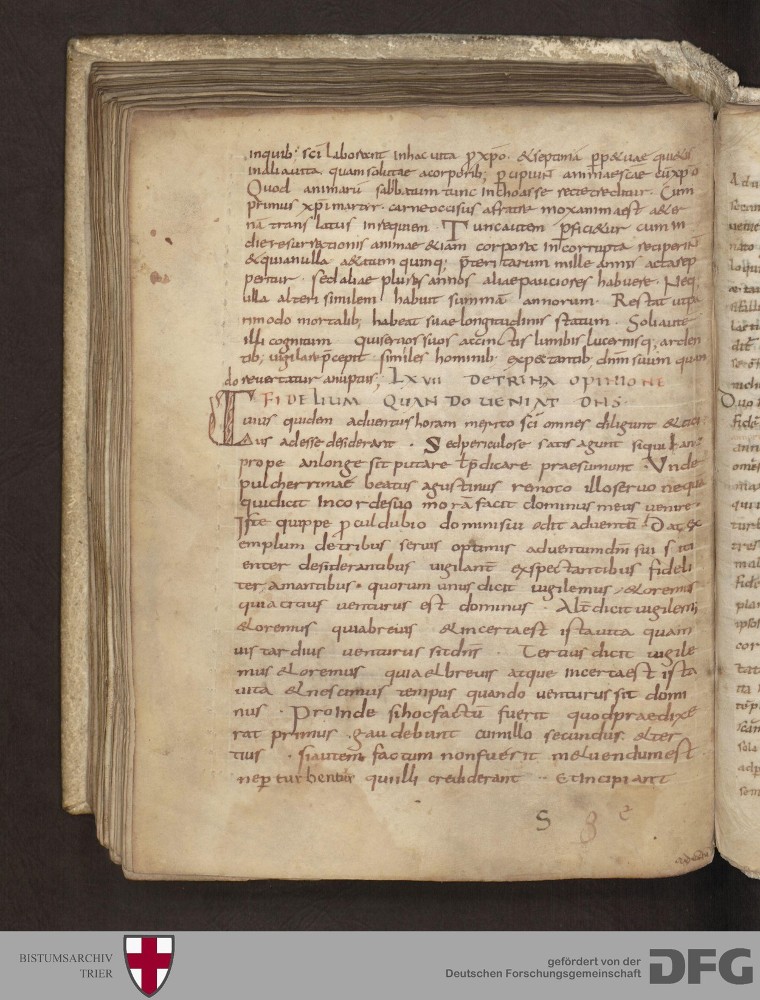 inquib; sci laborent inhac vita p xpo. & septima ppetuae quietis
inalia vita. quam solutae acorporib; percipiunt animae scae cu xpo
Quod animaru sabbatum tunc inchoasse recte creditur. Cum
primus xpi martir. carne occisus afratre mox anima est aeter
na trans latus in requiem. Tunc autem pficietur cum in
die resurrectionis animae etiam corpora incorrupta recipient
& quia nulla aetatum quinq; preteritarum mille annis acta rep
peritur. sed aliae plures annos aliae pauciores habuere. Neq;
ulla alteri similem habuit summam annorum. Restat ut pa
ri modo mortalib; habeat suae longitudinis statum. Soli aute
illi cognitum qui servos suos accinctis lumbis lucernisq; arden
tib; vigilare pcepit similes hominib; expectantib; dnm suum quan
do revertatur anuptiis; LXVII DE TRINA OPINIONE
FIDELIUM QUANDO VENIAT DNS.
uius quidem adventus horam merito sci omnes diligunt & citi
us adesse desiderant. Sed periculose satis agunt siqui hanc
prope an longe sit putare l pdicare praesumunt. Unde
pulcherrimae beatus agustinus remoto illo servo nequa
qui dicit in corde suo mora facit dominus meus venire.
Iste quippe pcul dubio domini sui odit adventu. Dat ex
emplum de tribus servis optimis adventum dni sui siti
enter desiderantibus vigilant exspectantibus fideli
ter amantibus. quorum unus dicit vigilemus & oremus
quia citius venturus est dominus. Alt dicit vigilem;
& oremus quia brevis & incerta est ista vita quam
vis tardius venturus sit dns. Tertius dicit vigile
mus & oremus quia et brevis atque incerta est ista
vita & nescimus tempus quando venturus sit domi
nus. Proinde si hoc factu fuerit quod praedixe
rat primus. gaudebunt cum illo secundus & ter
tius. si autem factum non fuerit metuendum est.
ne perturbentur qui illi crediderant. Et incipiant
BISTUMSARCHIV
TRIER
gefördert von der
Deutschen Forschungsgemeinschaft
DFG